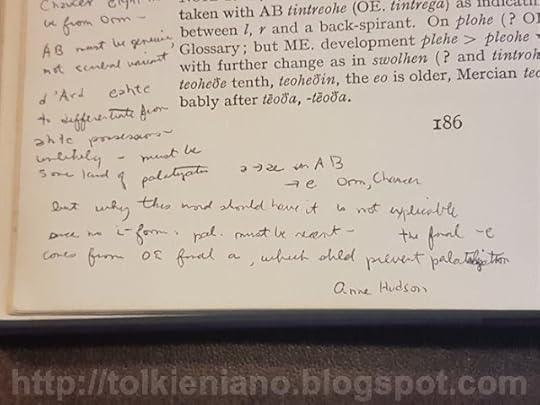 taken with AB tintreohe (OE. tintrega) as indicati
between l, r and a back-spirant. On plohe (? O
Glossary; but ME. development plehe > pleohe
with further change as in swolhen (? and tintroh
teoheðe tenth, teoheðin, the eo is older, Mercian te
bably after tēoða, -tēoða.
186
Chaucer eight
be from Orm -
AB must be genuine
not scribal variant
d'Ard eahte
to differentiate from
ahte possessions
unlikely - must be
some kind of palatization
in AB
→ e Orm, Chaucer
but why this word should have it is not explicable
since no i-form: pal. must be recent - the final -e
comes from OE final a, which shld prevent palatalization
Anne Hudson
http://tolkieniano.blogspot.com